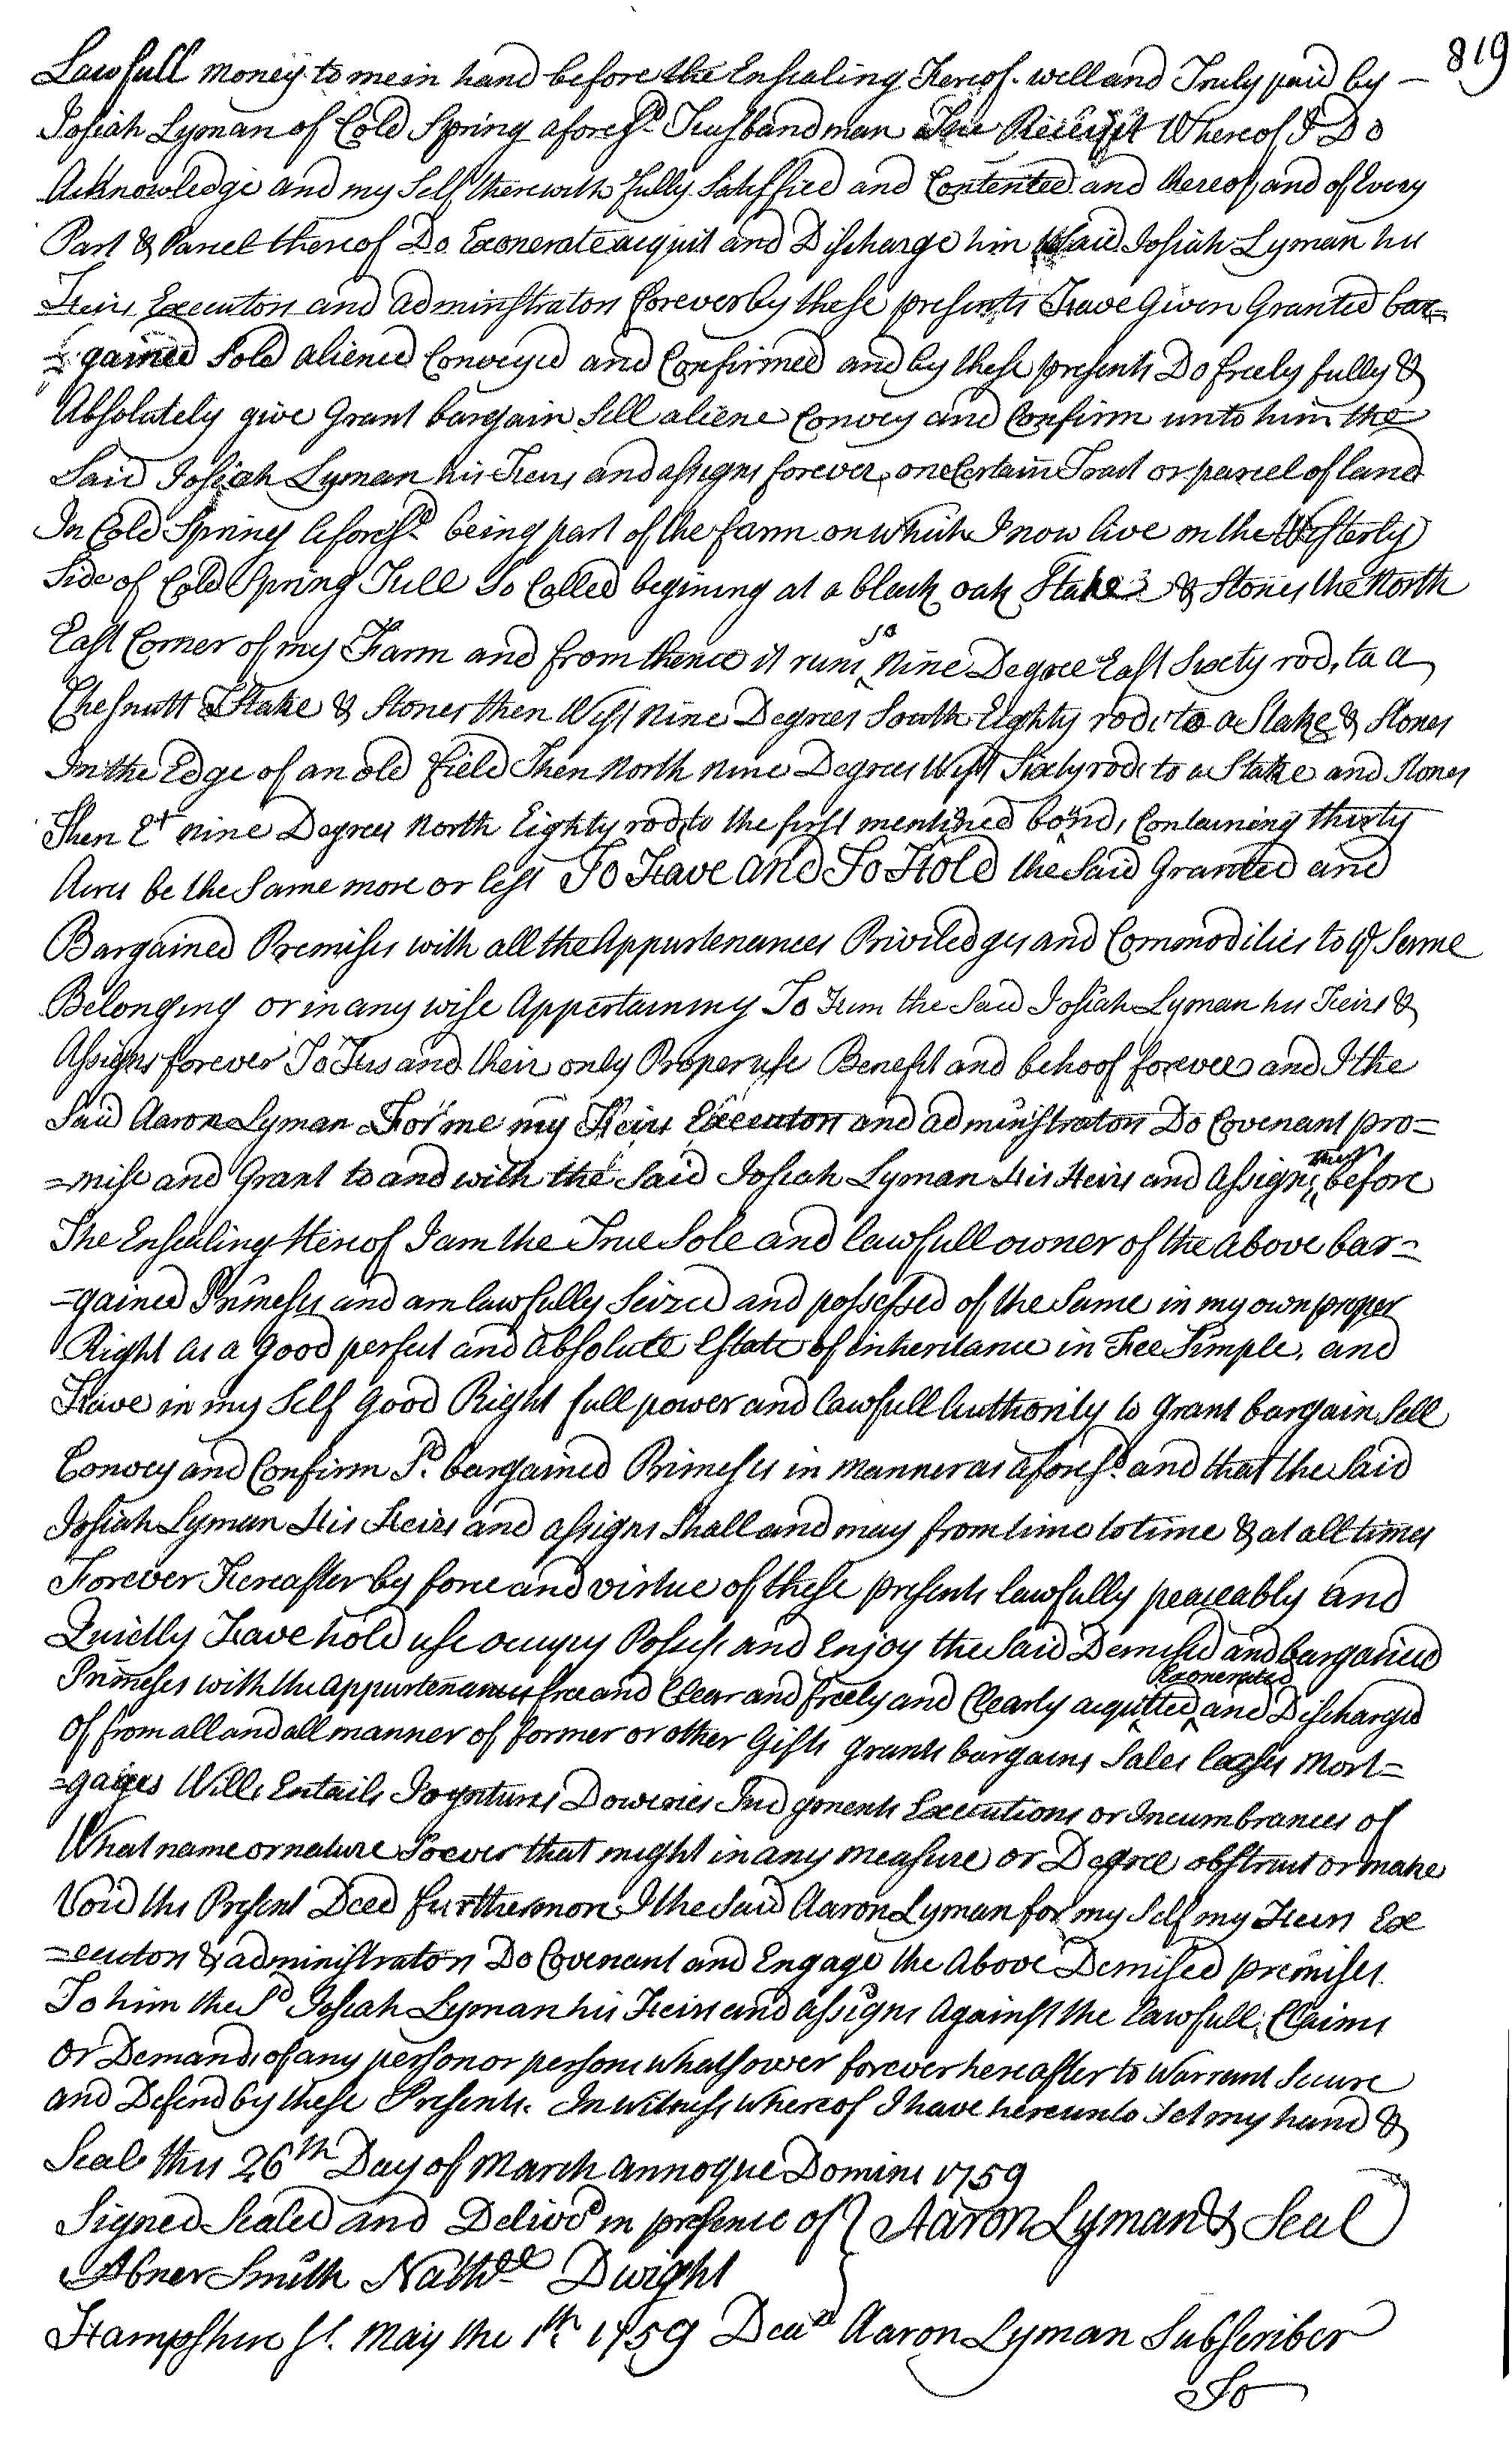 819
Lawfull money to me in hand before the Ensealing Hereof well and Truly paid by —
Josiah Lyman of Cold Spring afores.d Husbandman The Receipt Whereof I Do
Acknowledge and my Self therewith fully Satisfied and Contented and thereof and of Every
Part & Parcel thereof Do Exonerate acquit and Discharge him Said Josiah Lyman his
Heirs Executors and administrators forever by these presents Have Given Granted bar=
=gained Sold aliened Conveyed and Confirmed and by these presents Do freely fully &
Absolutely give Grant bargain Sell aliene Convey and Confirm unto him the
Said Josiah Lyman his Heirs and assigns forever one Certain Tract or parcel of land
In Cold Spring afores.d being part of the farm on which I now live on the Westerly
Side of Cold Spring Hill So Called begining at a black oak Stake & Stones the North
East Corner of my Farm and from thence it runs So Nine Degree East Sixty rods to a
Chesnutt Stake & Stones then West Nine Degrees South Eighty rods to a Stake & Stones
In the Edge of an old field Then North nine Degrees West Sixty rods to a Stake and Stones
Then Et nine Degrees North Eighty rods to the first mentioned bound, Containing thirty
Acres be the Same more or less To Have and To Hold the Said Granted and
Bargained Premises with all the Appurtenances Priviledges and Commodities to ye Same
Belonging or in any wise Appertaining To Him the Said Josiah Lyman his Heirs &
Assigns forever To His and their only Proper use Benefit and behoof forever and I the
Said Aaron Lyman For me my Heirs Executors and administrators Do Covenant pro=
=mise and Grant to and with the Said Josiah Lyman His Heirs and Assigns that before
The Ensealing Hereof I am the True Sole and lawfull owner of the above bar=
=gained Primeses and am lawfully Seized and possessed of the Same in my own proper
Right as a Good perfect and absolute Estate of inheritance in Fee Simple, and
Have in my Self Good Right full power and lawfull Authority to Grant bargain Sell
Convey and Confirm S.d bargained Primeses in manner as afores.d and that the Said
Josiah Lyman His Heirs and assigns Shall and may from time to time & at all times
Forever Hereafter by force and virtue of these presents lawfully peaceably and
Quietly Have hold use occupy Possess and Enjoy the Said Demised and bargained
Primeses with the appurtenances free and Clear and freely and Clearly acquitted Exonerated and Discharged
Of from all and all manner of former or other Gifts grants bargains Sales leases Mort=
=gages Wills Entails Joyntures Doweries Judgments Executions or Incumbrances of
What name or nature Soever that might in any measure or Degree obstruct or make
Void this Present Deed furthermore I the Said Aaron Lyman for my Self my Heirs Ex
=ecutors & administrators Do Covenant and Engage the Above Demised premises
To him the Sd Josiah Lyman his Heirs and assigns Against the lawfull Claims
Or Demands of any person or persons whatsoever forever hereafter to Warrant Secure
and Defend by these Presents. In witness whereof I have hereunto Set my hand &
Seal this 26th Day of March annoque Domini 1759
Signed Sealed and Delivd in presence of Aaron Lyman & Seal
Abner Smith Nathll Dwight
Hampshire Ss. May the 1st 1759 Deacn Aaron Lyman Subscriber
To